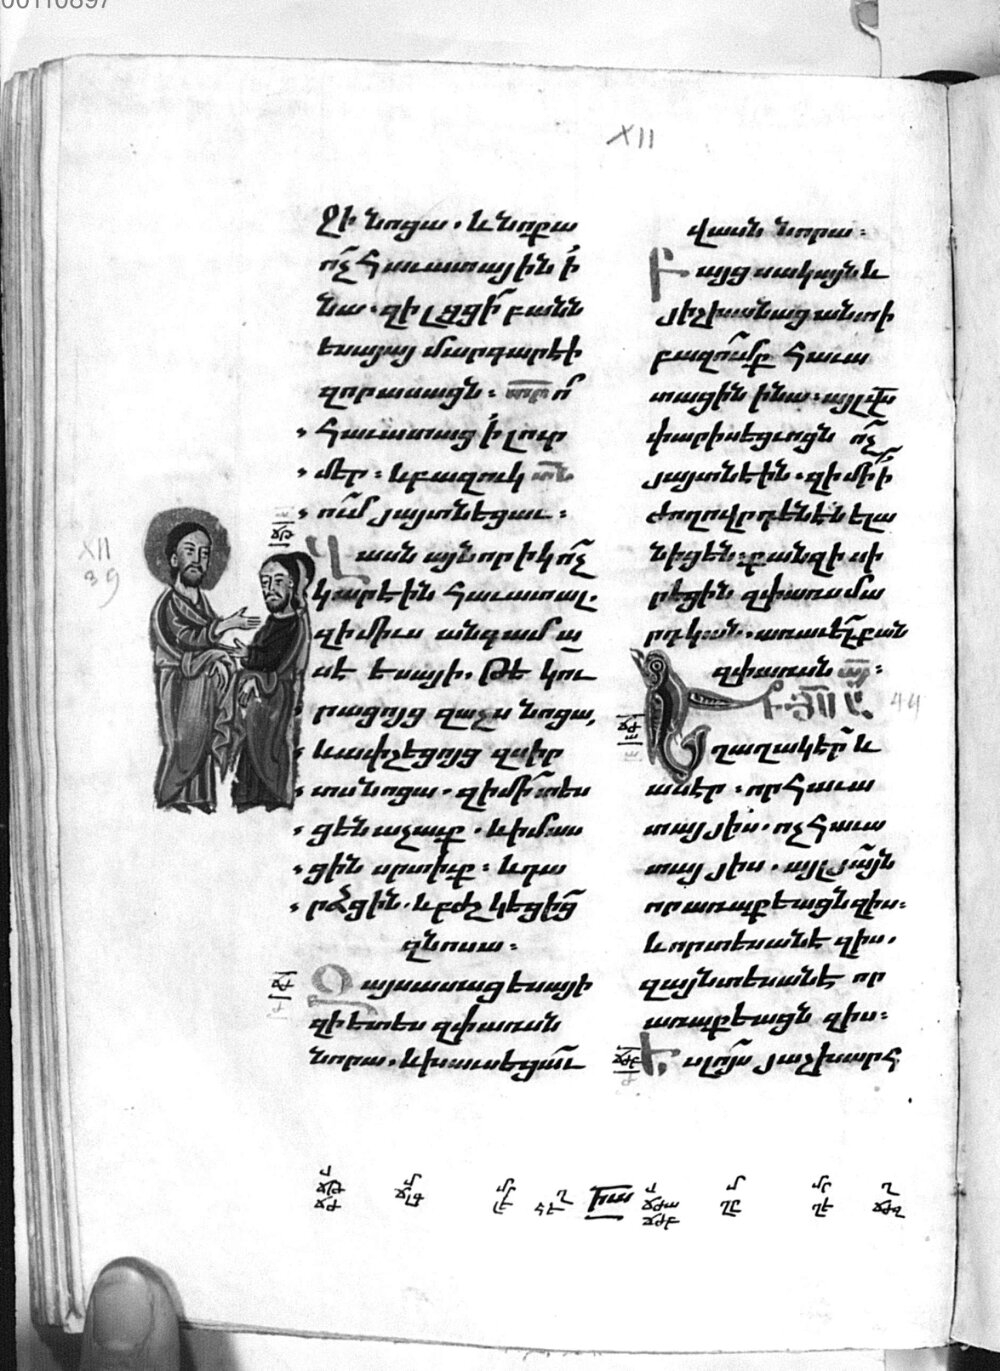 XII
ջի նոցա. և նոքա
ոչ հաւատային ի
նա. զի լցցի բանն
եսայայ մարգարէի
զոր ասացն: տր ո
հաւատաց ի լուր
մեր: և բազուկ տն
ում յայտնեցաւ:
Վասն այնորիկ ոչ
կարէին հաւատալ.
զի միւս անգամ ա
սէ եսայի. թէ կու
րացոյց զաչս նոցա,
և ափշեցոյց զսիր
տս նոցա. զի մի տես
ցեն աչաւք. և իմաս
ցին սրտիւք: և դա
րձցին. և բժշկեցից
զնոսա:
Զայս ասաց եսայի
զի ետես զփառսն
նորա. և խաւսեցաւ
վասն նորա:
Բայց սակայն և
յիշխանաց անտի
բազումք հաւա
տացին ի նա: այլ վս
փարիսեցւոցն ոչ
յայտնէին. զի մի ի
ժողովրդենէն ելա
նիցեն: քանզի սի
րեցին զփառս մա
րդկան. առաւել քան
զփառսն այ:
44
XII
39
աղաղակէր և
ասէր: որ հաւա
տայ յիս. ոչ հաւա
տայ յիս. այլ յայն
որ առաքեացն զիս:
և որ տեսանէ զիս.
զայն տեսանէ որ
առաքեացն զիս:
Ես լոյս յաշխարհ